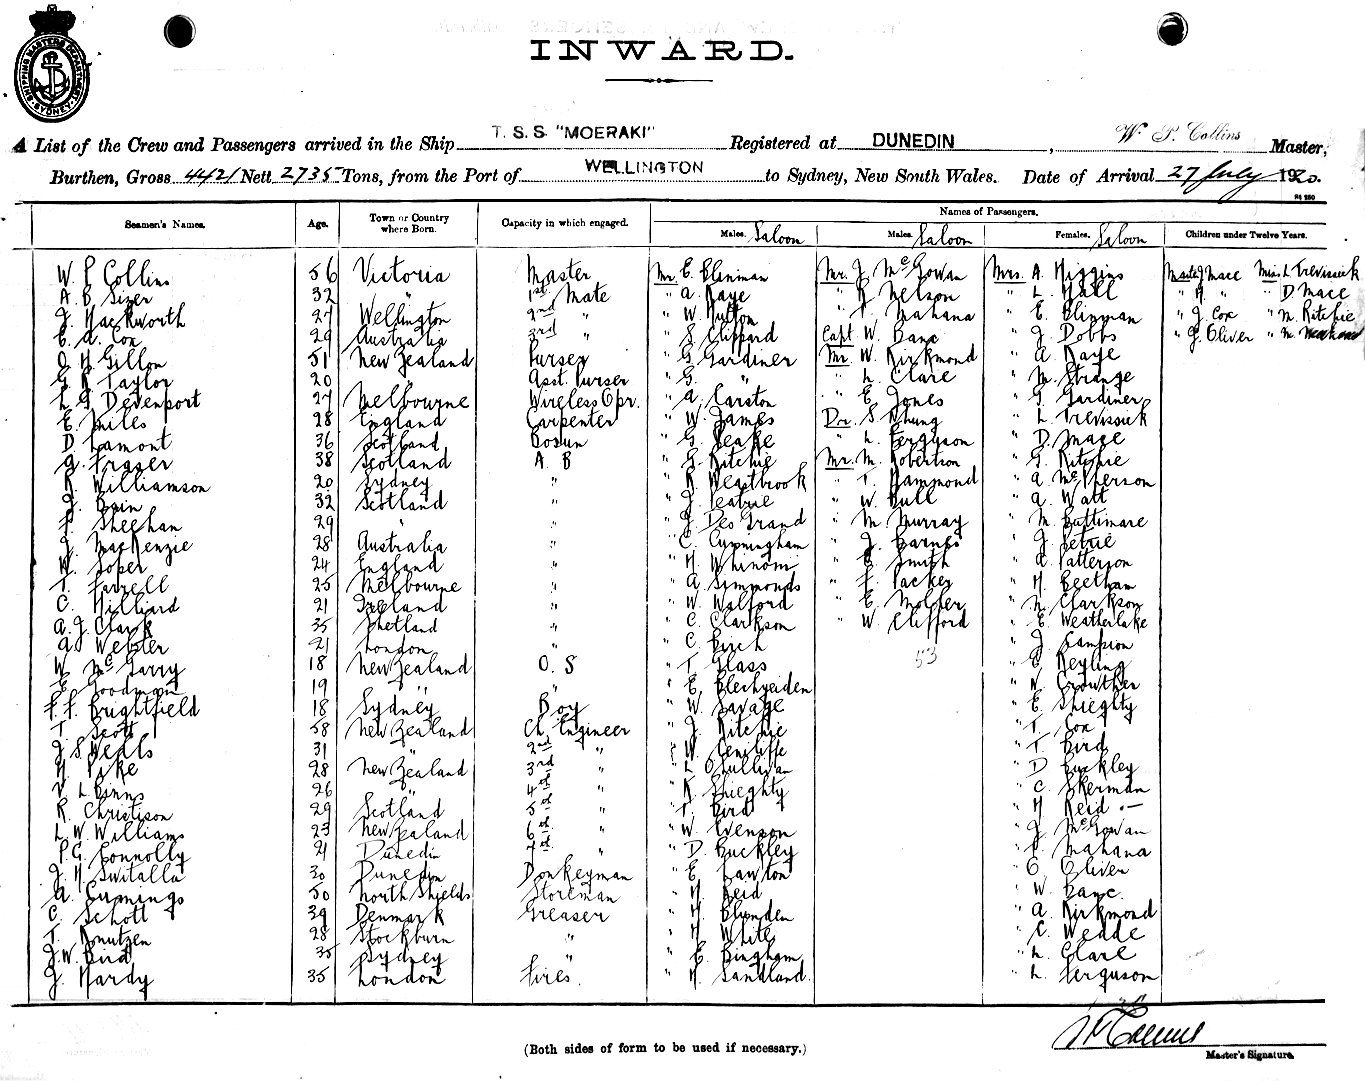 SHIPPING MASTERS DEPARTMENT SYDNEY
INWARD.
A List of the Crew and Passengers arrived in the Ship T. S. S. "MOERAKI" Registered at DUNEDIN, W. P. Collins Master,
Burthen, Gross 4421 Nett 2735 Tons, from the Port of WELLINGTON to Sydney, New South Wales. Date of Arrival 27 July 1920.
Seamen's Names. Age. Town or Country where Born. Capacity in which engaged. Names of Passengers.
Males. Saloon Males. Saloon Females. Saloon Children under Twelve Years.
W. P Collins 56 Victoria Master Mr. E. Blinman Mr. J. McGowan Mrs. A. Higgins Maste J Mace Miss L Trevissick
A. B. Sizer 32 " 1st Mate " A. Kaye " R Nelson " L. Hall " H. " " D Mace
J. Hackworth 27 Wellington 2nd " " W Hutton " P. Mahana " E. Blinman " J. Cox " M. Ritchie
E. A. Cox 29 Australia 3rd " " S. Clippard Capt W. Banc " J. Dobbs " J. Oliver " M.
O H Gillon 51 New Zealand Purser " G Gardiner Mr. W Kirkmond " A. Kaye
G R Taylor 20 " Asst. Purser " G. " " L. Clare " M Strange
L G Devenport 27 Melbourne Wireless Opr. " A. Carston " E Jones " G. Gardiner
E. Miles 28 England Carpenter " W. James Dr. S Whung " L Trevissick
D. Lamont 36 Scotland Bosun " G. Peake " L. Ferguson " D. Mace
A. Fraser 38 Scotland A. B " G. Ritchie Mr. M. Robertson " G. Ritchie
R. Williamson 20 Sydney " " R. Westbrook " T. Hammond " A McPherson
J. Bain 32 Scotland " " J. Peatrie " W. Bull " A. Watt
P. Sheehan 29 " " " J. Des Grand " M. Murray " M. Buttimare
J. MacKenzie 28 Australia " " C. Cunningham " J. Barnes " J. Petrie
W. Soper 24 England " " H Whinom " B Smith " A Patterson
T. Farrell 25 Melbourne " " A Simmonds " F. Packer " H. Beetham
C. Hilliard 21 Ireland " " W. Walford " E Moller " M. Clarkson
A. J. Clark 35 Shetland " " C. Clarkson " W Clifford " E. Weatherlake
A Webster 21 London " " C Birch " J. Sampion
W McGarry 18 New Zealand O. S " T. Glass 53 " E Keyling
E. Goodman 19 " " " E. Blechyeiden " W. Crowther
F. F. Brightfield 18 Sydney Boy " W. Savage " E. Shieghty
T. Scott 58 New Zealand Ch. Engineer " J. Ritchie " T. Cox
J S Wells 31 " 2nd " " W. Cencliffe " T. Bird
H Pike 28 New Zealand 3rd " " L. O'Sullivan " D Buckley
V L Binns 26 " 4th " " K Shieghty " C Skerman
R. Christison 29 Scotland 5th " " T. Bird " H Reid
L. W. Williams 23 New Zealand 6th " " W. Evenson " J. McGowan
P. G. Connolly 21 Dunedin 7th " " D. Buckley " P Mahana
J. H. Switalla 30 Dunedin Donkeyman " E Lawton " O. Oliver
A. Cumings 50 North Shields Storeman " H. Reid " W. Banc
C. Schott 39 Denmark Greaser " H. Blunden " A Kirkmond
T. Knutzen 28 Stockburn " " H White " C. Wedde
J. W. Bird 35 Sydney " " E. Bingham " L Clare
J. Hardy 35 London Fires. " H Sandland " L. Ferguson
W P Collins
Master's Signature.
(Both sides of form to be used if necessary.)